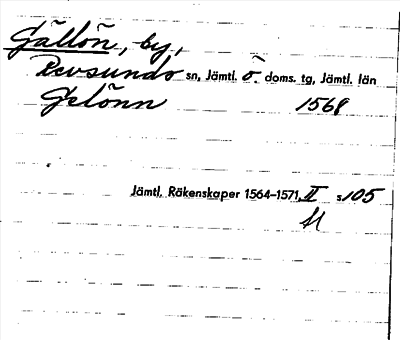 Gällön, by,
Revsunds sn, Jämtl. ö. doms. tg, Jämtl. län
Gelönn 1568
Jämtl. Räkenskaper 1564–1571, II s 105